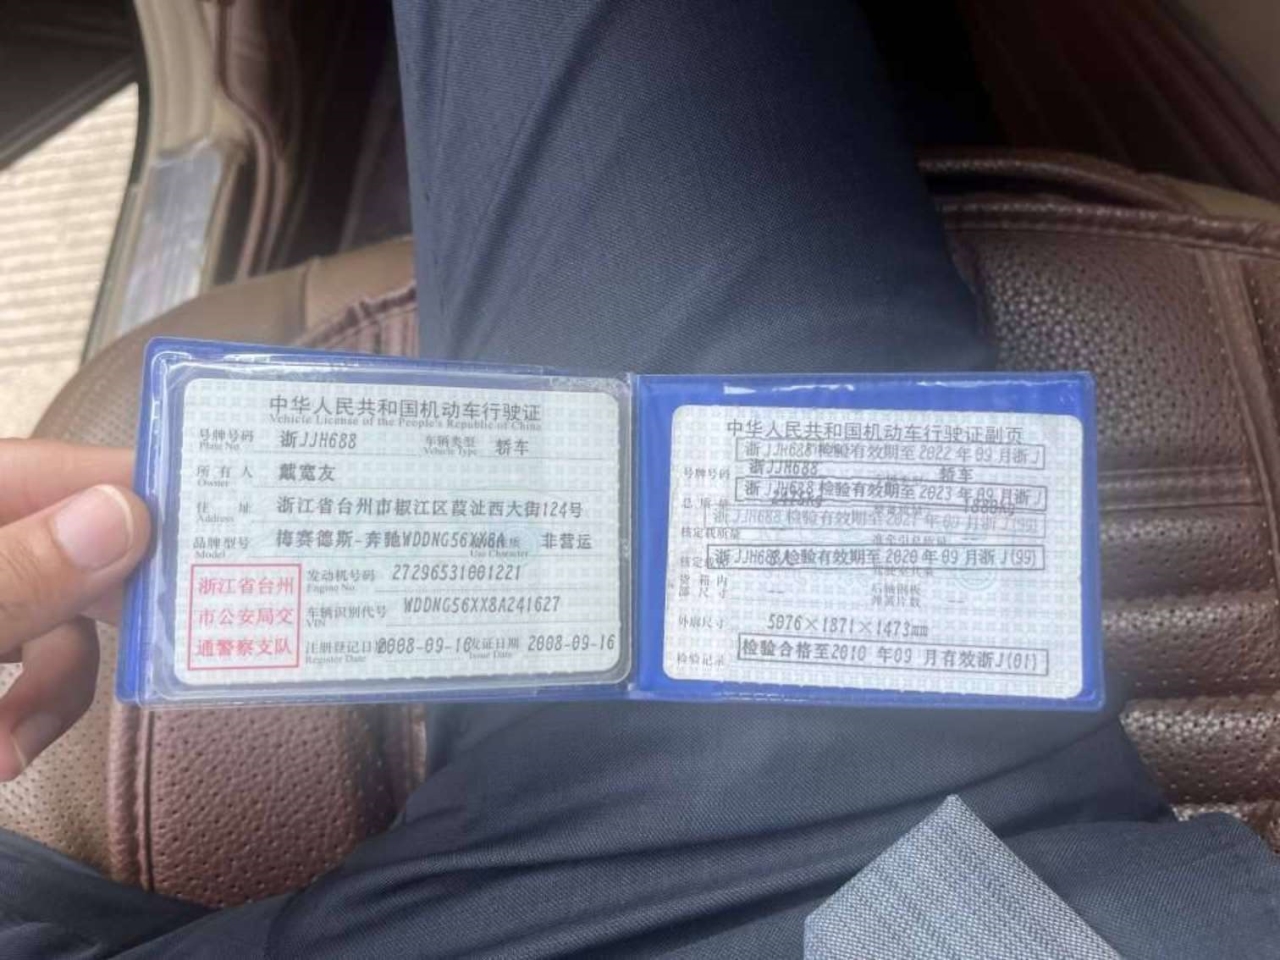 中华人民共和国机动车行驶证
Vehicle License of the People's Republic of China
号牌号码 浙JJH688 车辆类型 轿车
Plate No Vehicle Type
所有人 戴宽友
Owner
住址 浙江省台州市椒江区葭沚西大街124号
Address
品牌型号 梅赛德斯-奔驰WDDNG56XX8A 非营运
Model Use Character
浙江省台州
市公安局交
通警察支队
发动机号码 27296531001221
Engine No.
车辆识别代号 WDDNG56XX8A241627
VIN
注册登记日期 2008-09-16 发证日期 2008-09-16
Register Date Issue Date
中华人民共和国机动车行驶证副页
浙JJH688检验有效期至2022年09月浙J
号牌号码 浙JJH688 轿车
浙JJH688检验有效期至2023年09月浙J
总质量
浙JJH688检验有效期至2021年09月浙J(99)
核定载质量 准牵引总质量
浙JJH688检验有效期至2020年09月浙J(99)
货箱内
部尺寸 --
后轴钢板
弹簧片数 --
外廓尺寸 5076×1871×1473mm
检验记录 检验合格至2010年09月有效浙J(01)